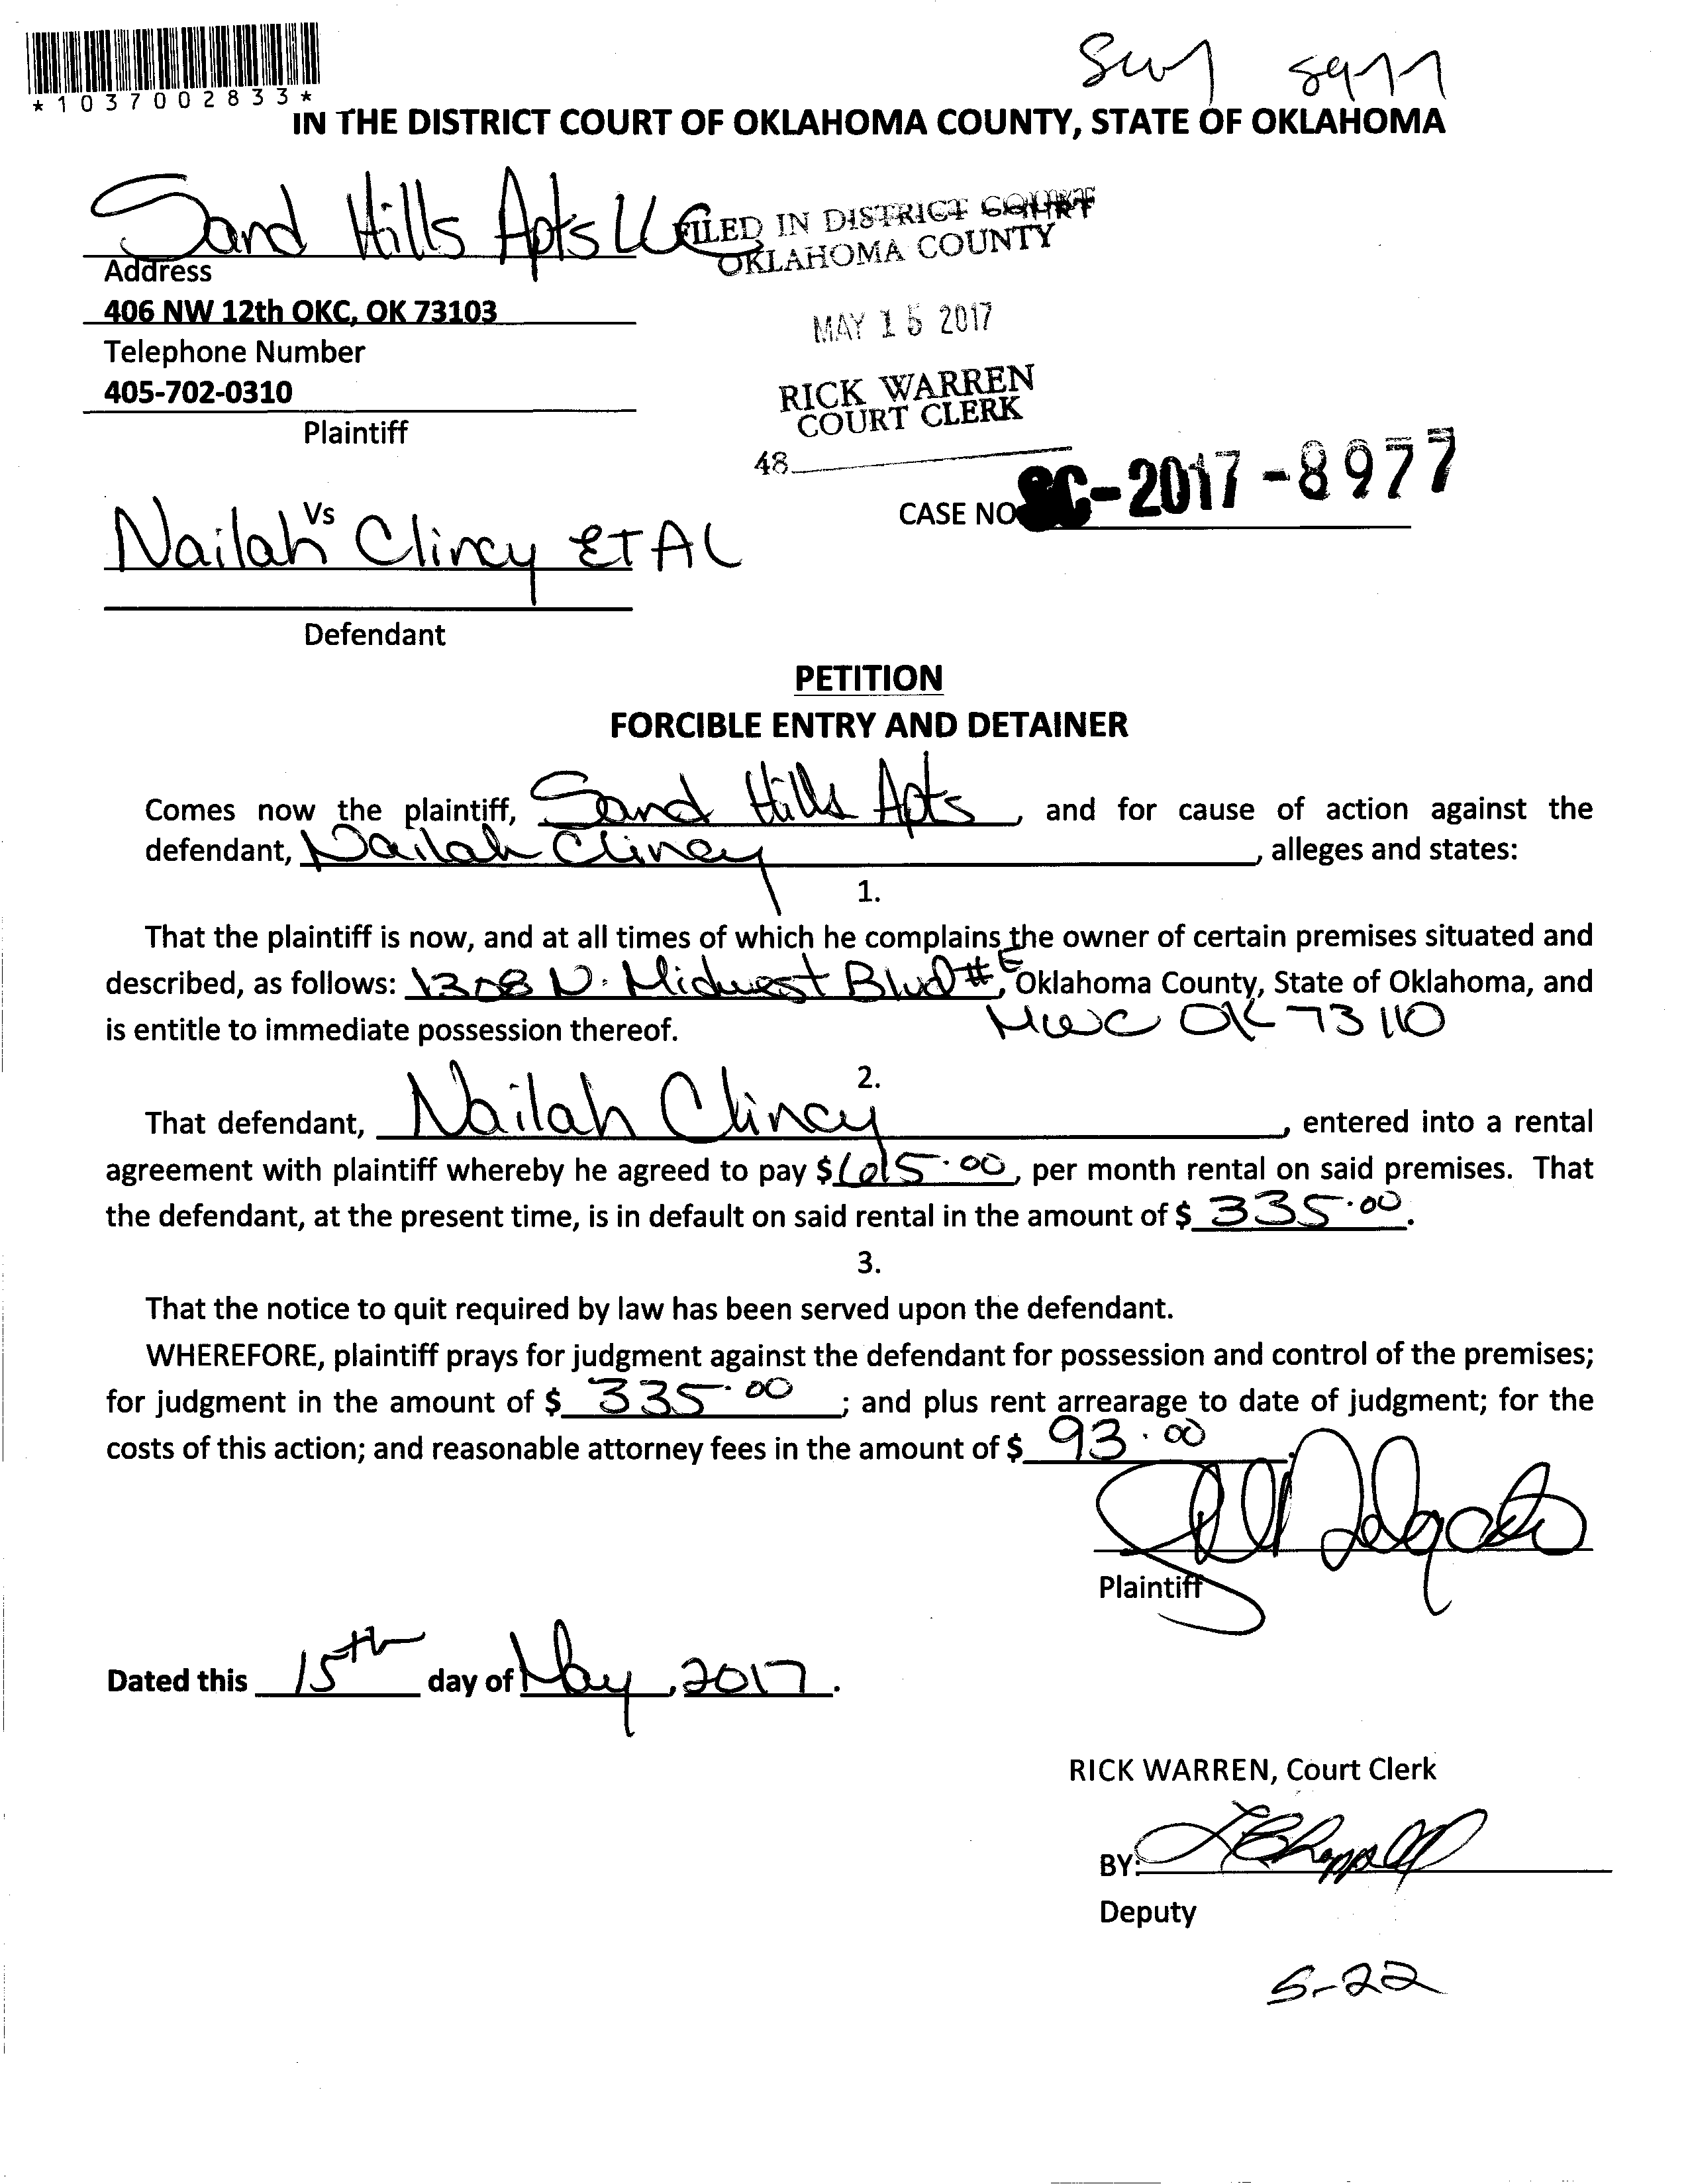 *1037002833*
IN THE DISTRICT COURT OF OKLAHOMA COUNTY, STATE OF OKLAHOMA
Sand Hills Apts LLC
FILED IN DISTRICT COURT
OKLAHOMA COUNTY
Address
406 NW 12th OKC, OK 73103
MAY 15 2017
Telephone Number
405-702-0310
RICK WARREN
COURT CLERK
Plaintiff
48
CASE NO SC-2017-8977
Vs
Nailah Clincy ET AL
Defendant
PETITION
FORCIBLE ENTRY AND DETAINER
Comes now the plaintiff, Sand Hills Apts, and for cause of action against the
defendant, Nailah Clincy, alleges and states:
1.
That the plaintiff is now, and at all times of which he complains the owner of certain premises situated and
described, as follows: 1308 N. Midwest Blvd # E, Oklahoma County, State of Oklahoma, and
is entitle to immediate possession thereof. MWC OK 73110
2.
That defendant, Nailah Clincy, entered into a rental
agreement with plaintiff whereby he agreed to pay $615.00, per month rental on said premises. That
the defendant, at the present time, is in default on said rental in the amount of $ 335.00.
3.
That the notice to quit required by law has been served upon the defendant.
WHEREFORE, plaintiff prays for judgment against the defendant for possession and control of the premises;
for judgment in the amount of $ 335.00; and plus rent arrearage to date of judgment; for the
costs of this action; and reasonable attorney fees in the amount of $ 93.00.
Delgado
Plaintiff
Dated this 15th day of May, 2017.
RICK WARREN, Court Clerk
BY:
Deputy
5-22